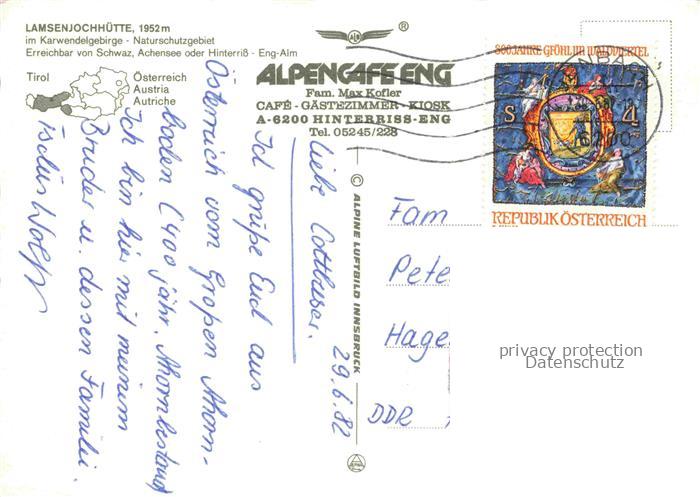 LAMSENJOCHHÜTTE, 1952 m
im Karwendelgebirge - Naturschutzgebiet
Erreichbar von Schwaz, Achensee oder Hinterriß - Eng-Alm
Tirol
Österreich
Austria
Autriche
®
ALPENCAFE ENG
Fam. Max Kofler
CAFÉ - GÄSTEZIMMER - KIOSK
A-6200 HINTERRISS-ENG
Tel. 05245/228
© ALPINE LUFTBILD INNSBRUCK
29.6.82
Liebe
Ich grüße Euch aus
Österreich vom Großen Ahorn-
boden (400 jähr. Ahornbestand
Ich bin hier mit meinem
Bruder u. dessen Familie.
Wolf
800 JAHRE GFÖHL IM WALDVIERTEL
S 4
REPUBLIK ÖSTERREICH
Fam
Pete
Hage
DDR
privacy protection
Datenschutz